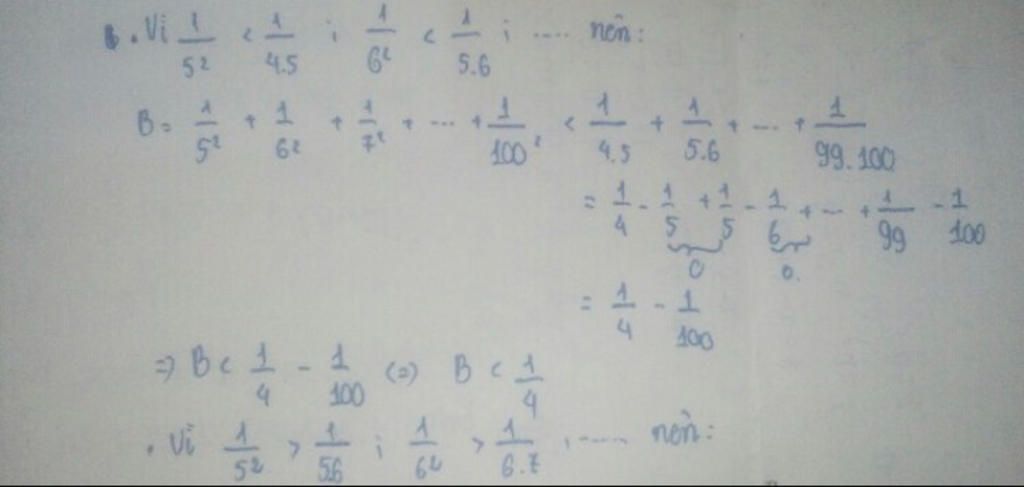 . Vì 1/5² < 1/4.5 ; 1/6² < 1/5.6 ; .... nên:
B = 1/5² + 1/6² + 1/7² + ... + 1/100² < 1/4.5 + 1/5.6 + ... + 1/99.100
= 1/4 - 1/5 + 1/5 - 1/6 + ... + 1/99 - 1/100
0 0.
= 1/4 - 1/100
=> B < 1/4 - 1/100 (=) B < 1/4
. Vì 1/5² > 1/5.6 ; 1/6² > 1/6.7 ; ..... nên: